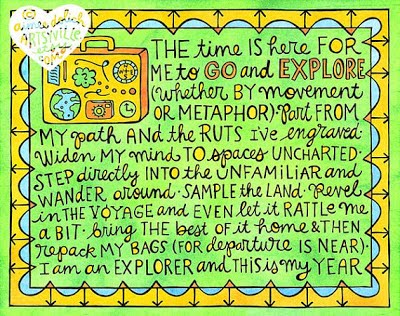 ARTSVILLE
THE time IS here FOR
ME to GO and EXPLORE
(whether BY movement
OR METAPHOR)• Part FROM
MY path AND the RUTS I've engraved•
Widen MY mind TO spaces UNCHARTED•
STEP directly INTO the UNFAMILIAR and
WANDER around • SAMPLE the LAND • Revel
in THE VOYAGE and EVEN let it RATTLE me
A BIT • bring THE best OF it home & THEN
repack MY BAGS (FOR departure IS NEAR)•
I am an EXPLORER and THIS is my YEAR